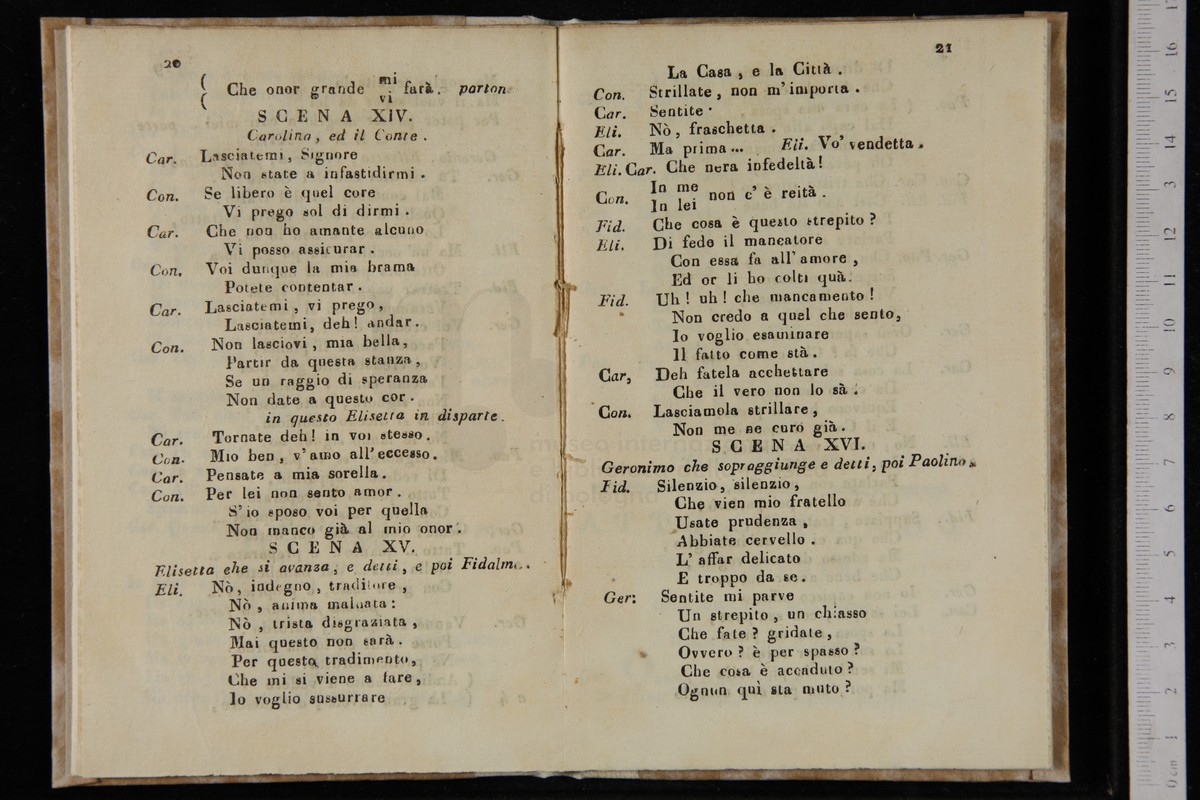 20
( Che onor grande mi farà. parton
( vi
SCENA XIV.
Carolina, ed il Conte.
Car. Lasciatemi, Signore
Non state a infastidirmi.
Con. Se libero è quel core
Vi prego sol di dirmi.
Car. Che non ho amante alcuno
Vi posso assicurar.
Con. Voi dunque la mia brama
Potete contentar.
Car. Lasciatemi, vi prego,
Lasciatemi, deh! andar.
Con. Non lasciovi, mia bella,
Partir da questa stanza,
Se un raggio di speranza
Non date a questo cor.
in questo Elisetta in disparte.
Car. Tornate deh! in voi stesso.
Con. Mio ben, v'amo all'eccesso.
Car. Pensate a mia sorella.
Con. Per lei non sento amor.
S'io sposo voi per quella
Non manco già al mio onor.
SCENA XV.
Elisetta che si avanza, e detti, e poi Fidalm..
Eli. Nò, indegno, traditore,
Nò, anima malnata:
Nò, trista disgraziata,
Mai questo non sarà.
Per questo tradimento,
Che mi si viene a fare,
Io voglio sussurrare
21
La Casa, e la Città.
Con. Strillate, non m'importa.
Car. Sentite.
Eli. Nò, fraschetta.
Car. Ma prima... Eli. Vo' vendetta.
Eli. Car. Che nera infedeltà!
Con. In me non c'è reità.
In lei
Fid. Che cosa è questo strepito?
Eli. Di fede il mancatore
Con essa fa all'amore,
Ed or li ho colti quà.
Fid. Uh! uh! che mancamento!
Non credo a quel che sento,
Io voglio esaminare
Il fatto come stà.
Car, Deh fatela acchettare
Che il vero non lo sà.
Con. Lasciamola strillare,
Non me ne curo già.
SCENA XVI.
Geronimo che sopraggiunge e detti, poi Paolino.
Fid. Silenzio, silenzio,
Che vien mio fratello
Usate prudenza,
Abbiate cervello.
L'affar delicato
E troppo da se.
Ger: Sentite mi parve
Un strepito, un chiasso
Che fate? gridate,
Ovvero? è per spasso?
Che cosa è accaduto?
Ognun quì sta muto?